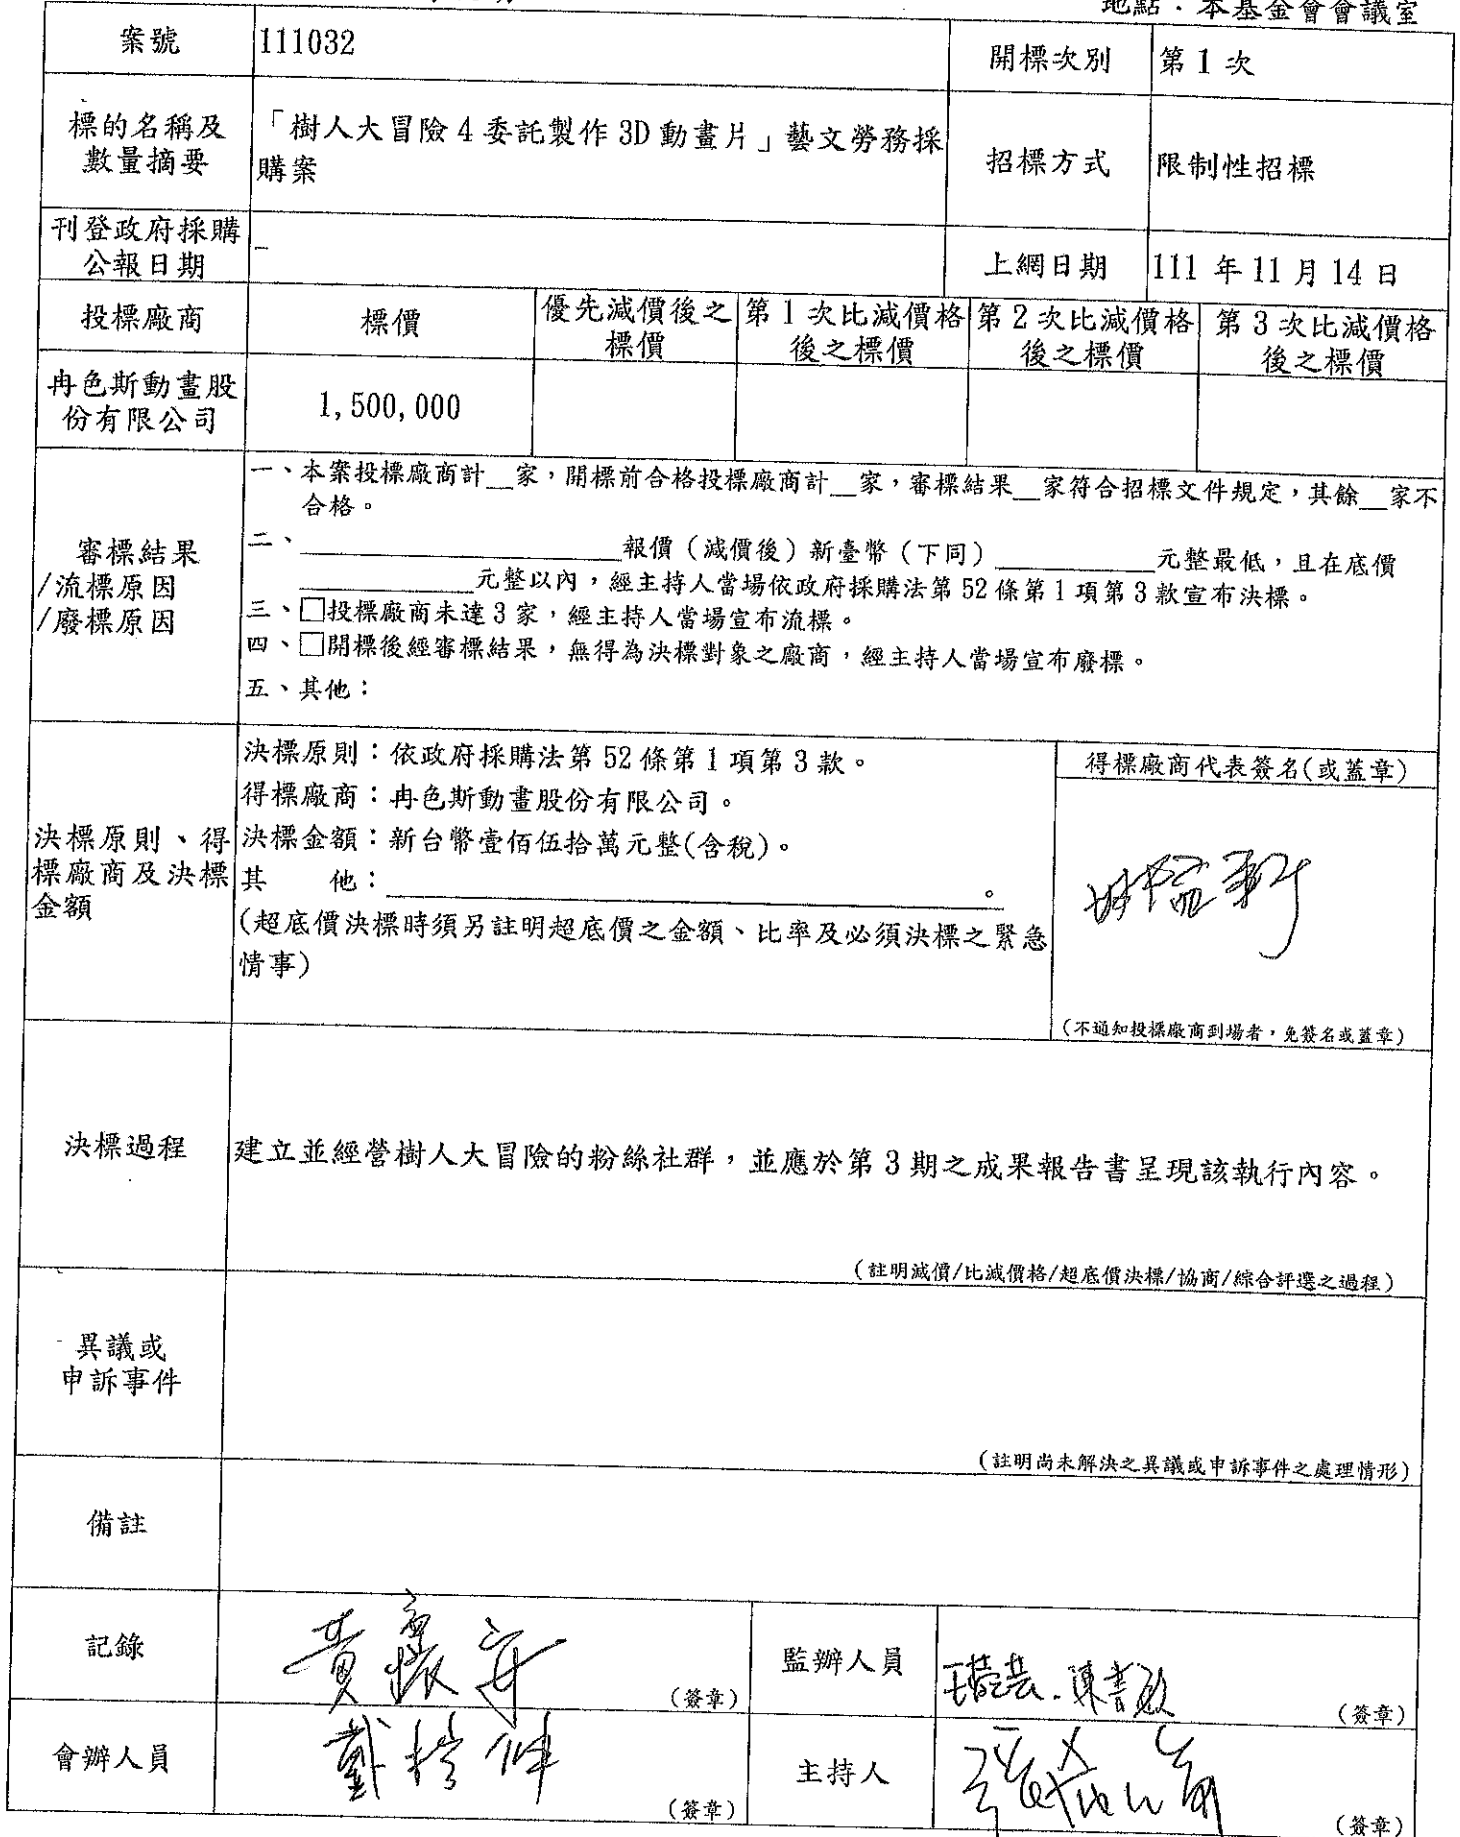 地點：本基金會會議室
案號 111032 開標次別 第 1 次
標的名稱及數量摘要 「樹人大冒險 4 委託製作 3D 動畫片」藝文勞務採
購案
招標方式 限制性招標
刊登政府採購
公報日期
－
上網日期 111 年 11 月 14 日
投標廠商 標價 優先減價後之
標價
第 1 次比減價格
後之標價
第 2 次比減價格
後之標價
第 3 次比減價格
後之標價
冉色斯動畫股
份有限公司
1,500,000
審標結果
/流標原因
/廢標原因
一、本案投標廠商計__家，開標前合格投標廠商計__家，審標結果__家符合招標文件規定，其餘__家不
合格。
二、____________________報價（減價後）新臺幣（下同）__________元整最低，且在底價
___________元整以內，經主持人當場依政府採購法第 52 條第 1 項第 3 款宣布決標。
三、□投標廠商未達 3 家，經主持人當場宣布流標。
四、□開標後經審標結果，無得為決標對象之廠商，經主持人當場宣布廢標。
五、其他：
決標原則、得
標廠商及決標
金額
決標原則：依政府採購法第 52 條第 1 項第 3 款。
得標廠商：冉色斯動畫股份有限公司。
決標金額：新台幣壹佰伍拾萬元整(含稅)。
其　　他：______________________________。
(超底價決標時須另註明超底價之金額、比率及必須決標之緊急
情事)
得標廠商代表簽名(或蓋章)
(不通知投標廠商到場者，免簽名或蓋章)
決標過程
建立並經營樹人大冒險的粉絲社群，並應於第 3 期之成果報告書呈現該執行內容。
(註明減價/比減價格/超底價決標/協商/綜合評選之過程)
異議或
申訴事件
(註明尚未解決之異議或申訴事件之處理情形)
備註
記錄 (簽章) 監辦人員 陳書敏 (簽章)
會辦人員 (簽章) 主持人 (簽章)